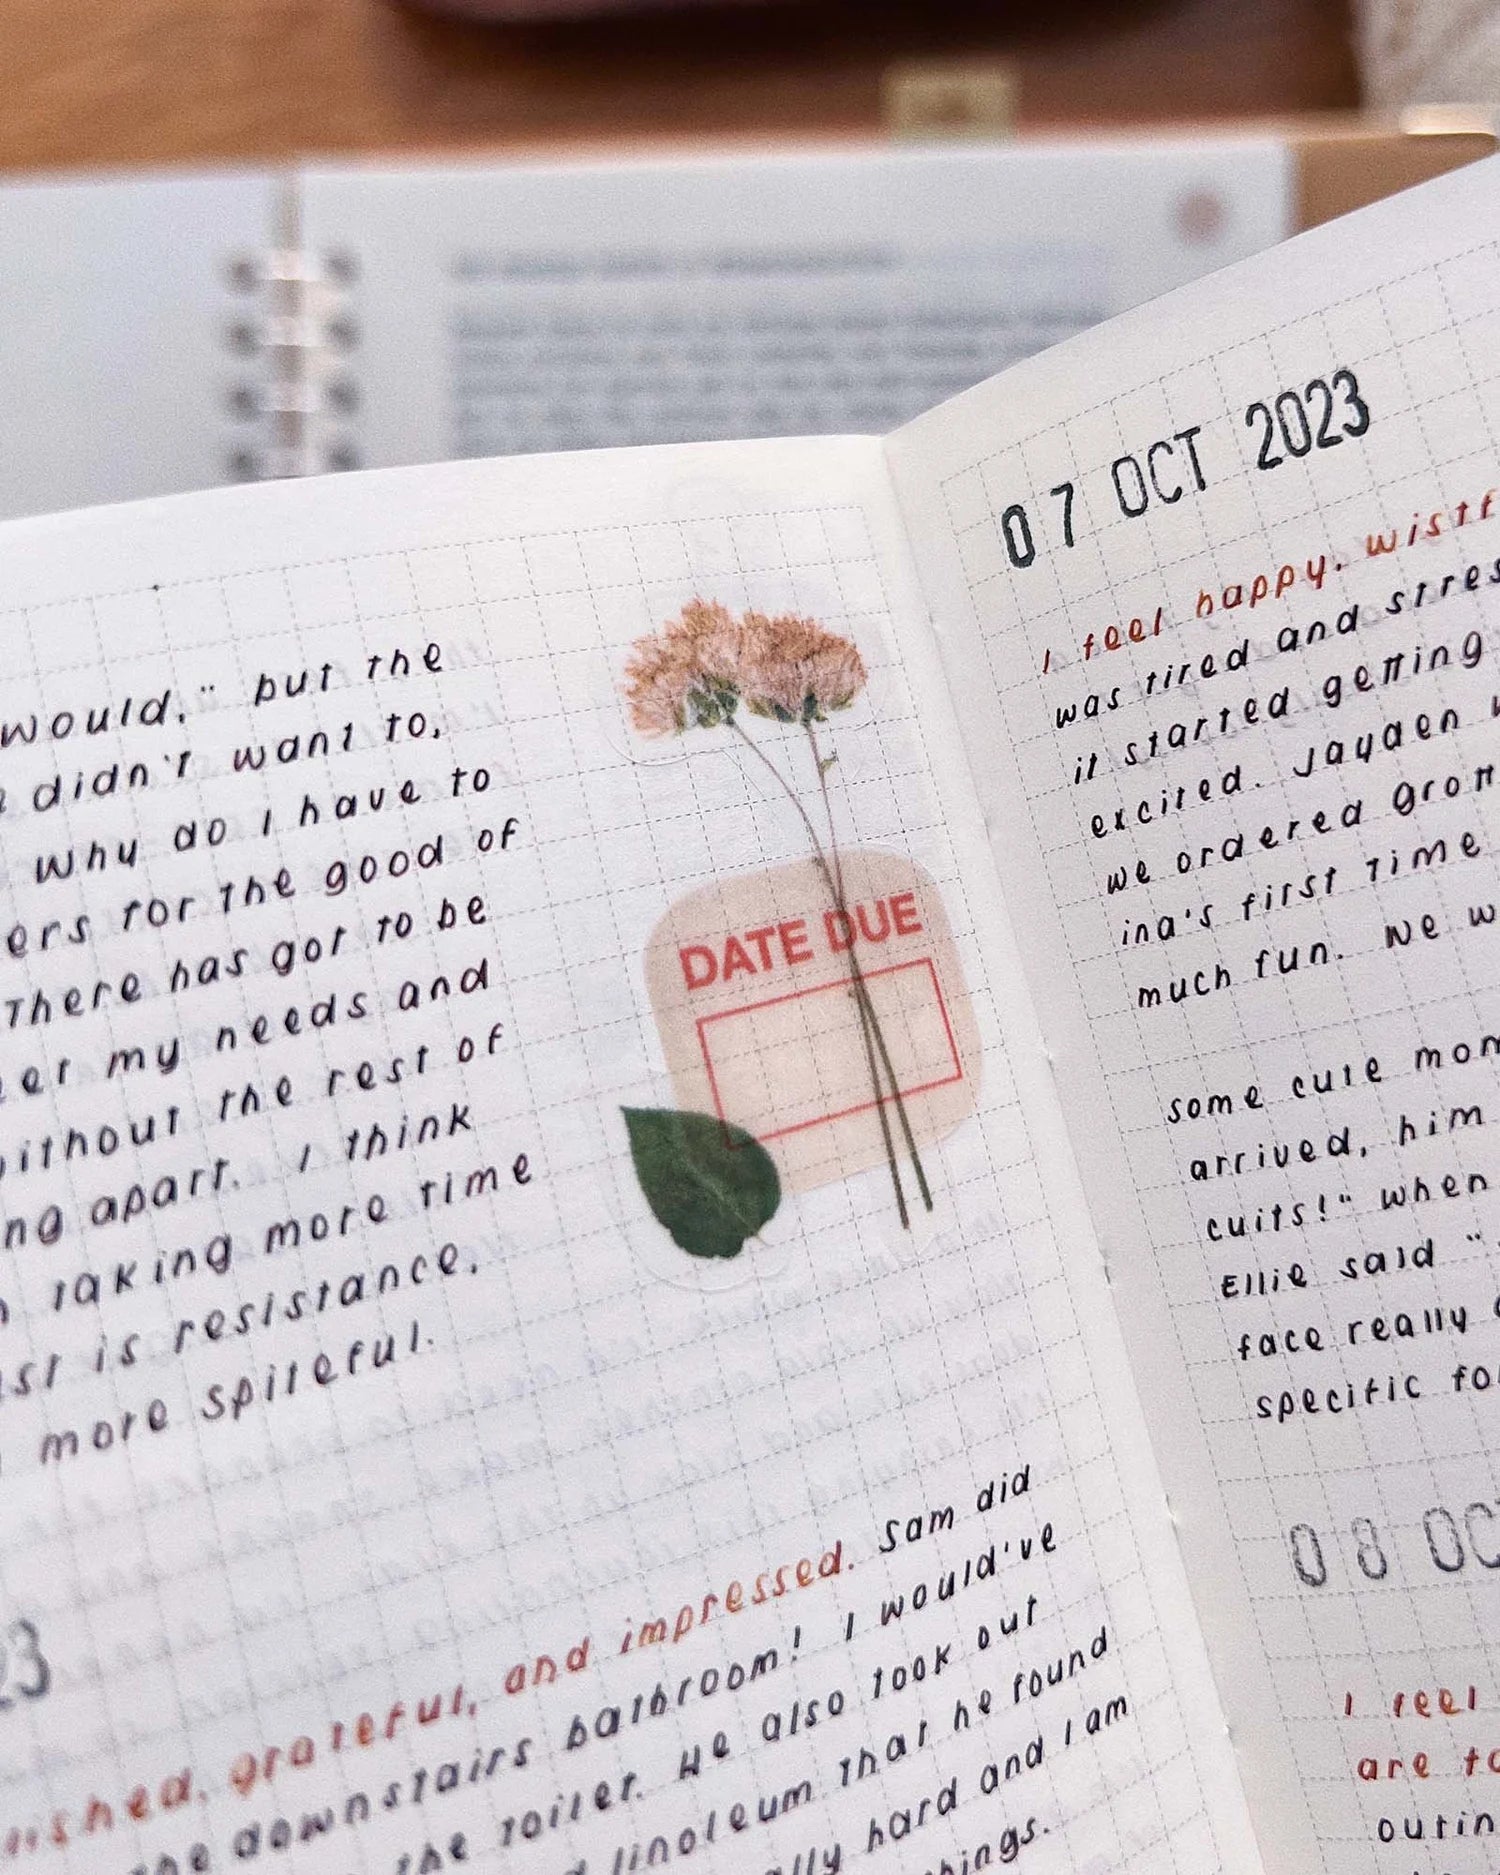 would," but the
didn't want to,
why do I have to
ers for the good of
There has got to be
my needs and
without the rest of
ng apart. I think
taking more time
is resistance,
more spiteful.
DATE DUE
23
grateful, and impressed. Sam did
downstairs bathroom! I would've
the toilet. He also took out
linoleum that he found
hard and I am
07 OCT 2023
I feel happy, wistf
was tired and stres
it started getting
excited. Jayden
we ordered
ina's first time
much fun. We w
some cute mom
arrived, him
cuits!" when
Ellie said "
face really
specific fo
08 OC
I feel
are to
outin